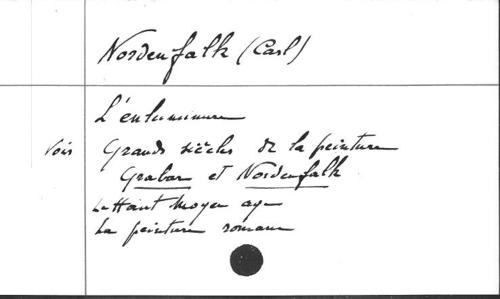 Nordenfalk (Carl)
L'enluminure
Vois Grands siècles de la peinture
Grabar et Nordenfalk
Le Haut Moyen age
La peinture romane